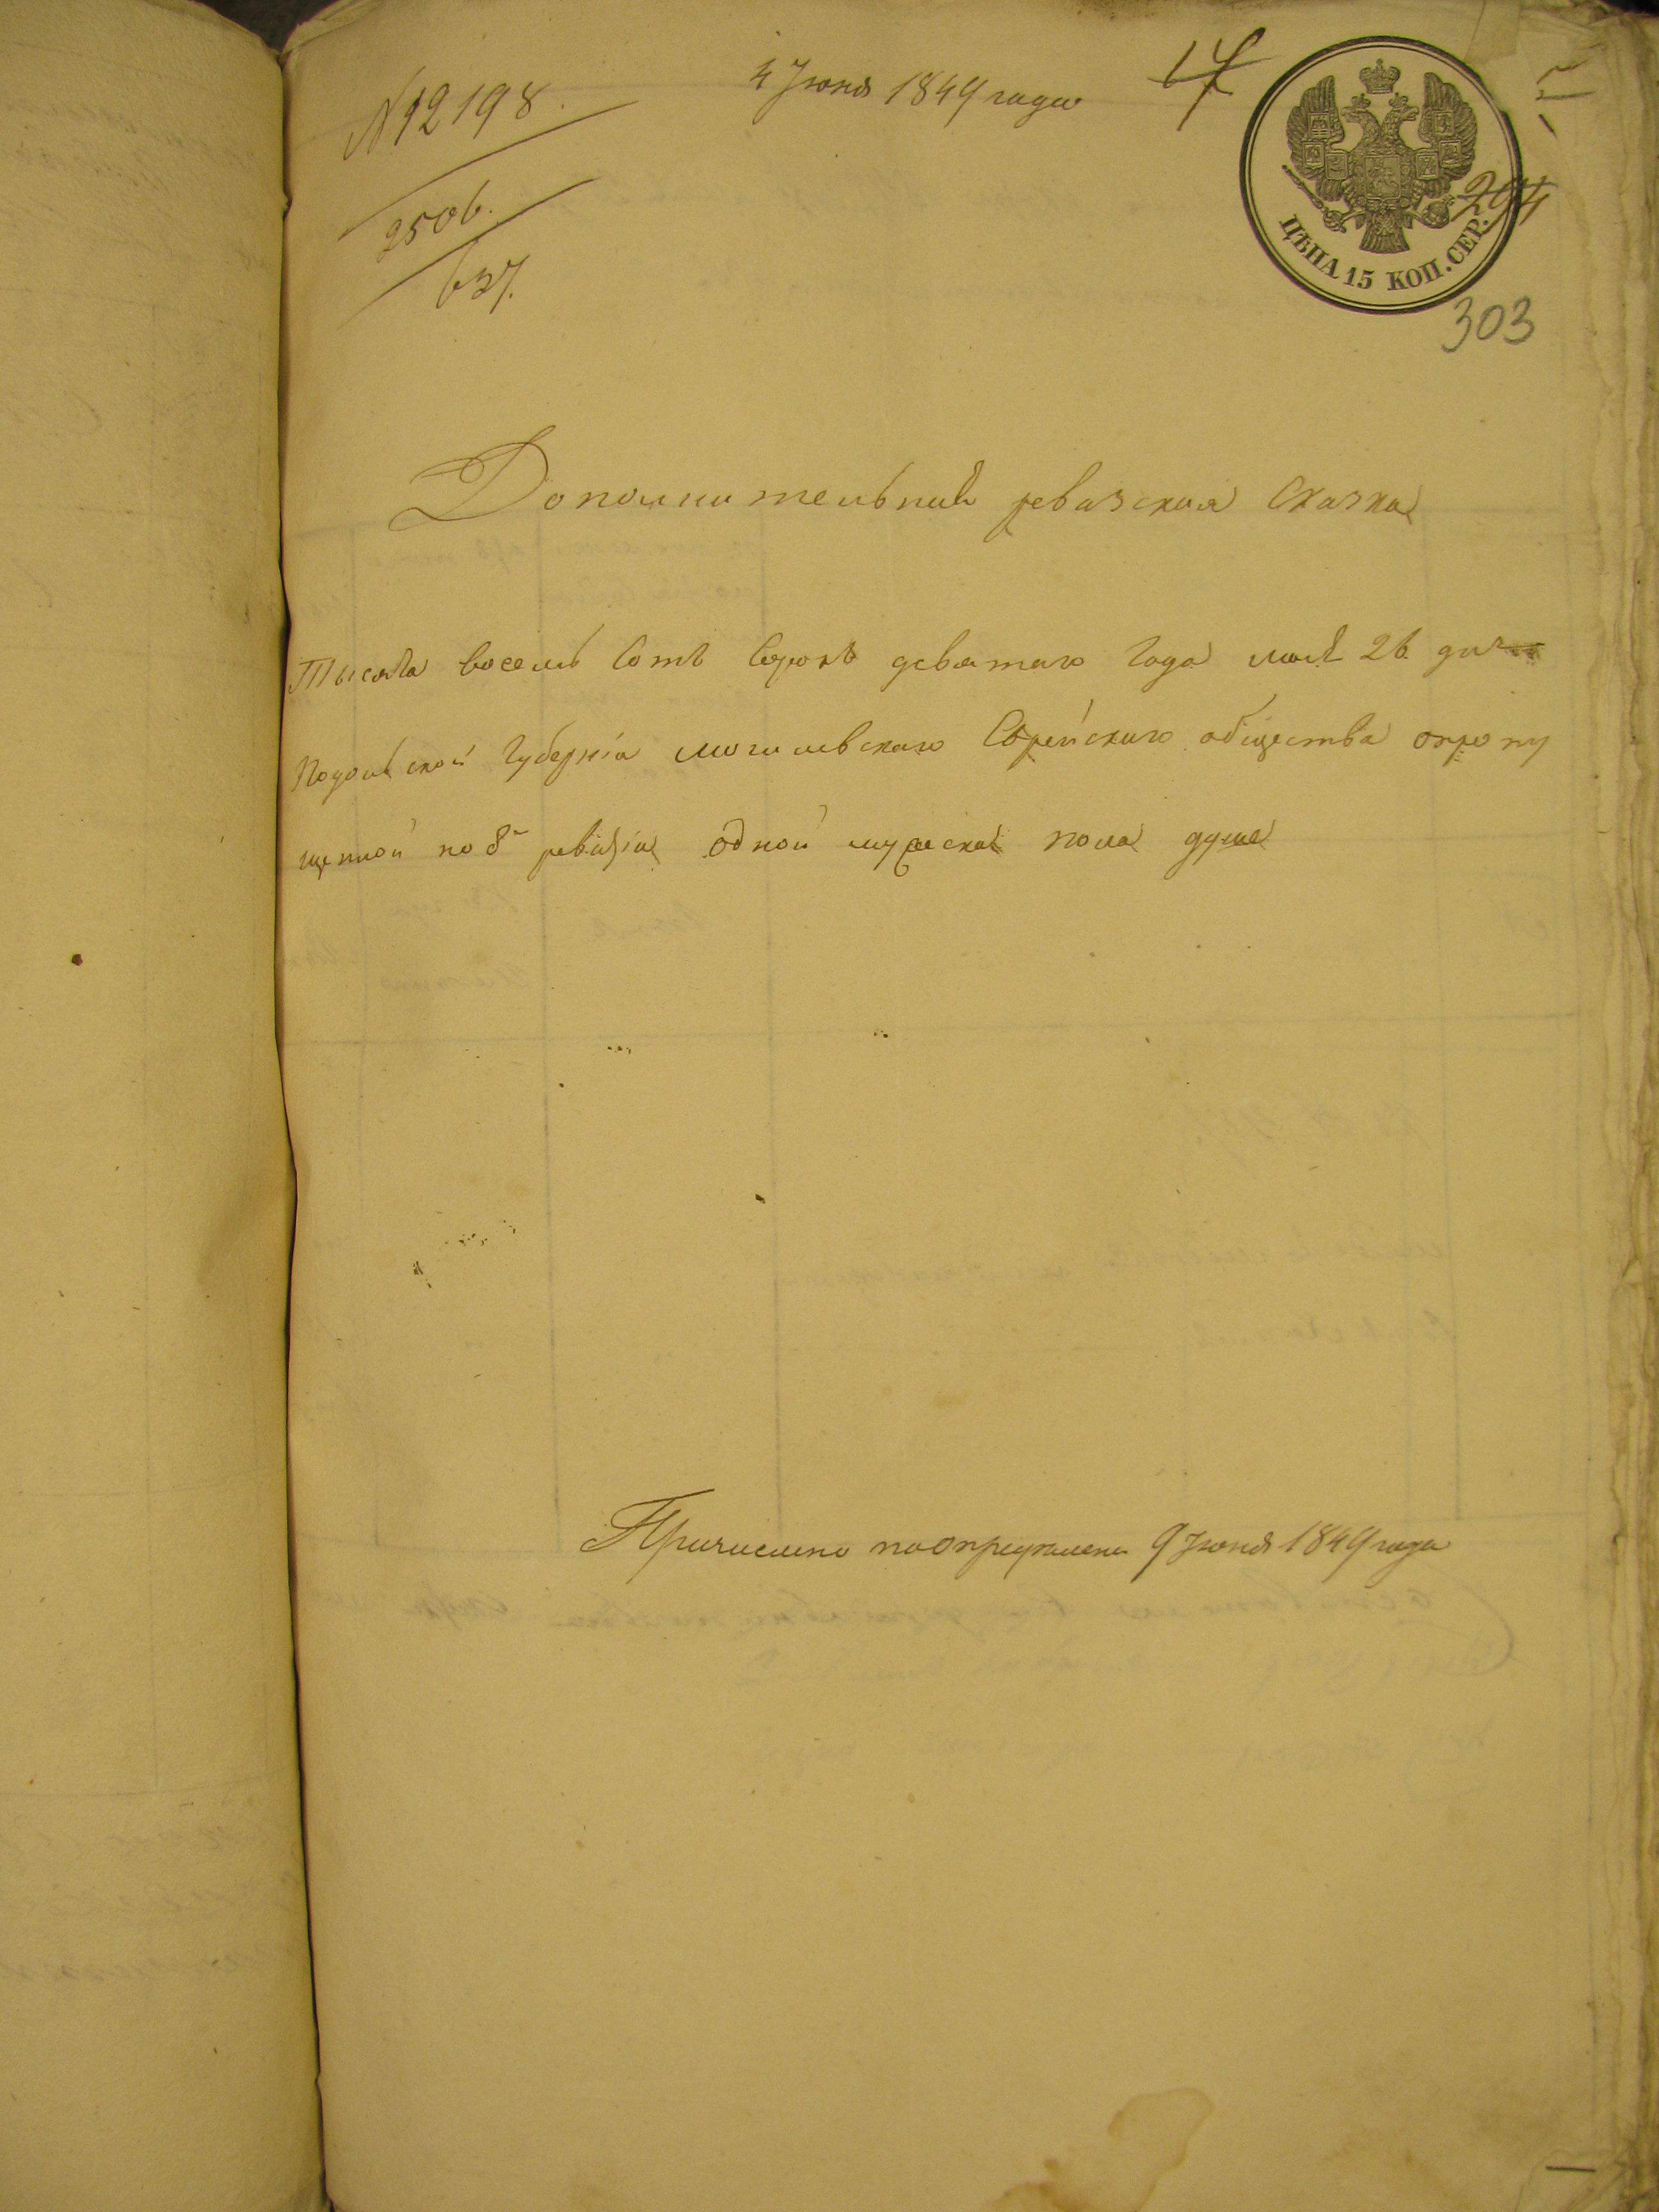 № 12198.
4 Іюня 1849 года
17
2506.
637.
294
ЦѢНА 15 КОП. СЕР.
303
Дополнительная ревизская Сказка
Тысяча восемь Сотъ Сорокъ девятаго Года мая 26 дня
Подольской Губерніи могилевскаго Еврейскаго общества о пропу
щенной по 8й ревизіи одной мужеска пола душе
Причислено по опредѣлению 9 Іюня 1849 года